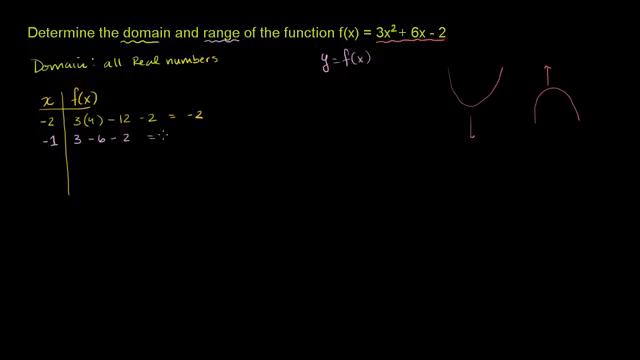 Determine the domain and range of the function f(x) = 3x² + 6x - 2
Domain: all Real numbers
y = f(x)
x f(x)
-2 3(4) - 12 - 2 = -2
-1 3 - 6 - 2 =